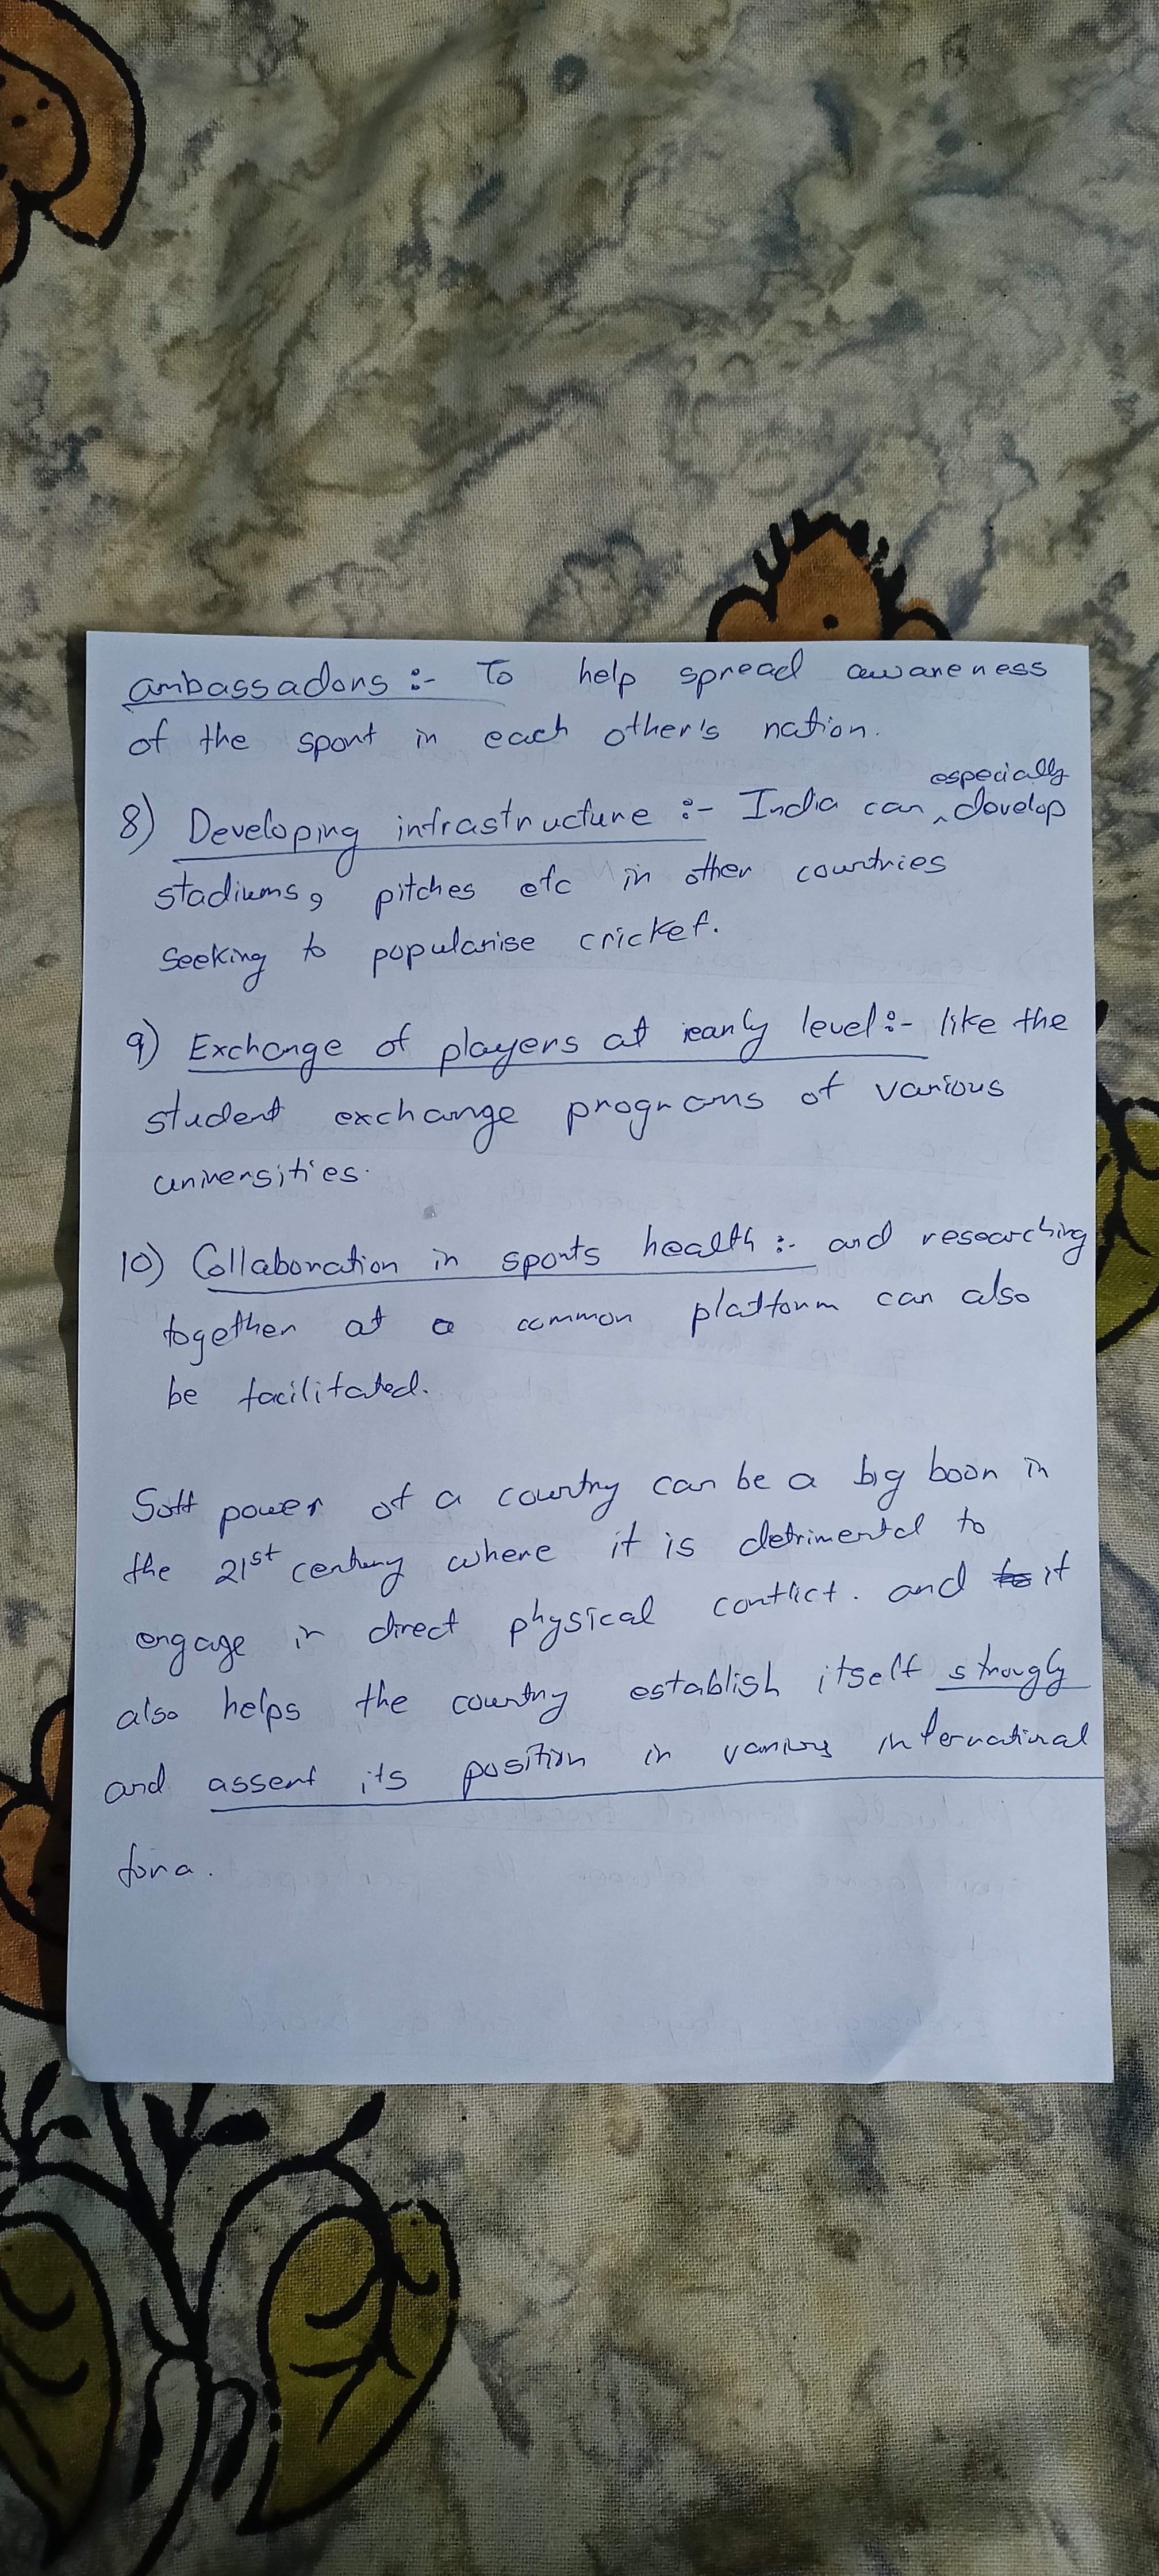 ambassadors :- To help spread awareness
of the sport in each other's nation.
especially
8) Developing infrastructure :- India can ‸ develop
stadiums, pitches etc in other countries
seeking to popularise cricket.
9) Exchange of players at early level :- like the
student exchange programs of various
universities.
10) Collaboration in sports health :- and researching
together at a common platform can also
be facilitated.
Soft power of a country can be a big boon in
the 21st century where it is detrimental to
engage in direct physical conflict. and it
also helps the country establish itself strongly
and assert its position in various international
fora.